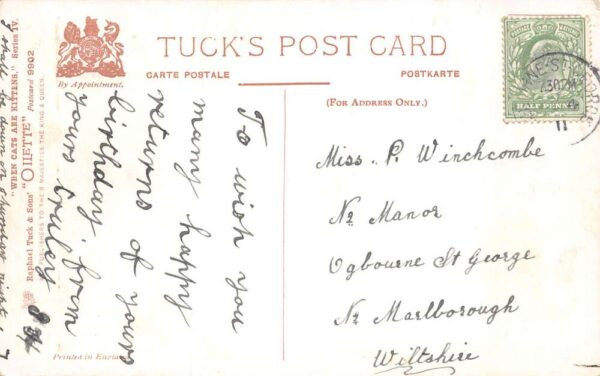 TUCK'S POST CARD
CARTE POSTALE
POSTKARTE
By Appointment.
(FOR ADDRESS ONLY.)
POSTAGE
HALF PENNY
11
To wish you
many happy
returns of yours
birthday. from
yours
I shall be down on
night
Miss. P. Winchcombe
Nr Manor
Ogbourne St George
Nr Marlborough
Wiltshire
"WHEN CATS ARE KITTENS." Series IV.
Raphael Tuck & Sons' "OILETTE" Postcard 9902
PUBLISHERS TO THEIR MAJESTIES THE KING & QUEEN.
Printed in England